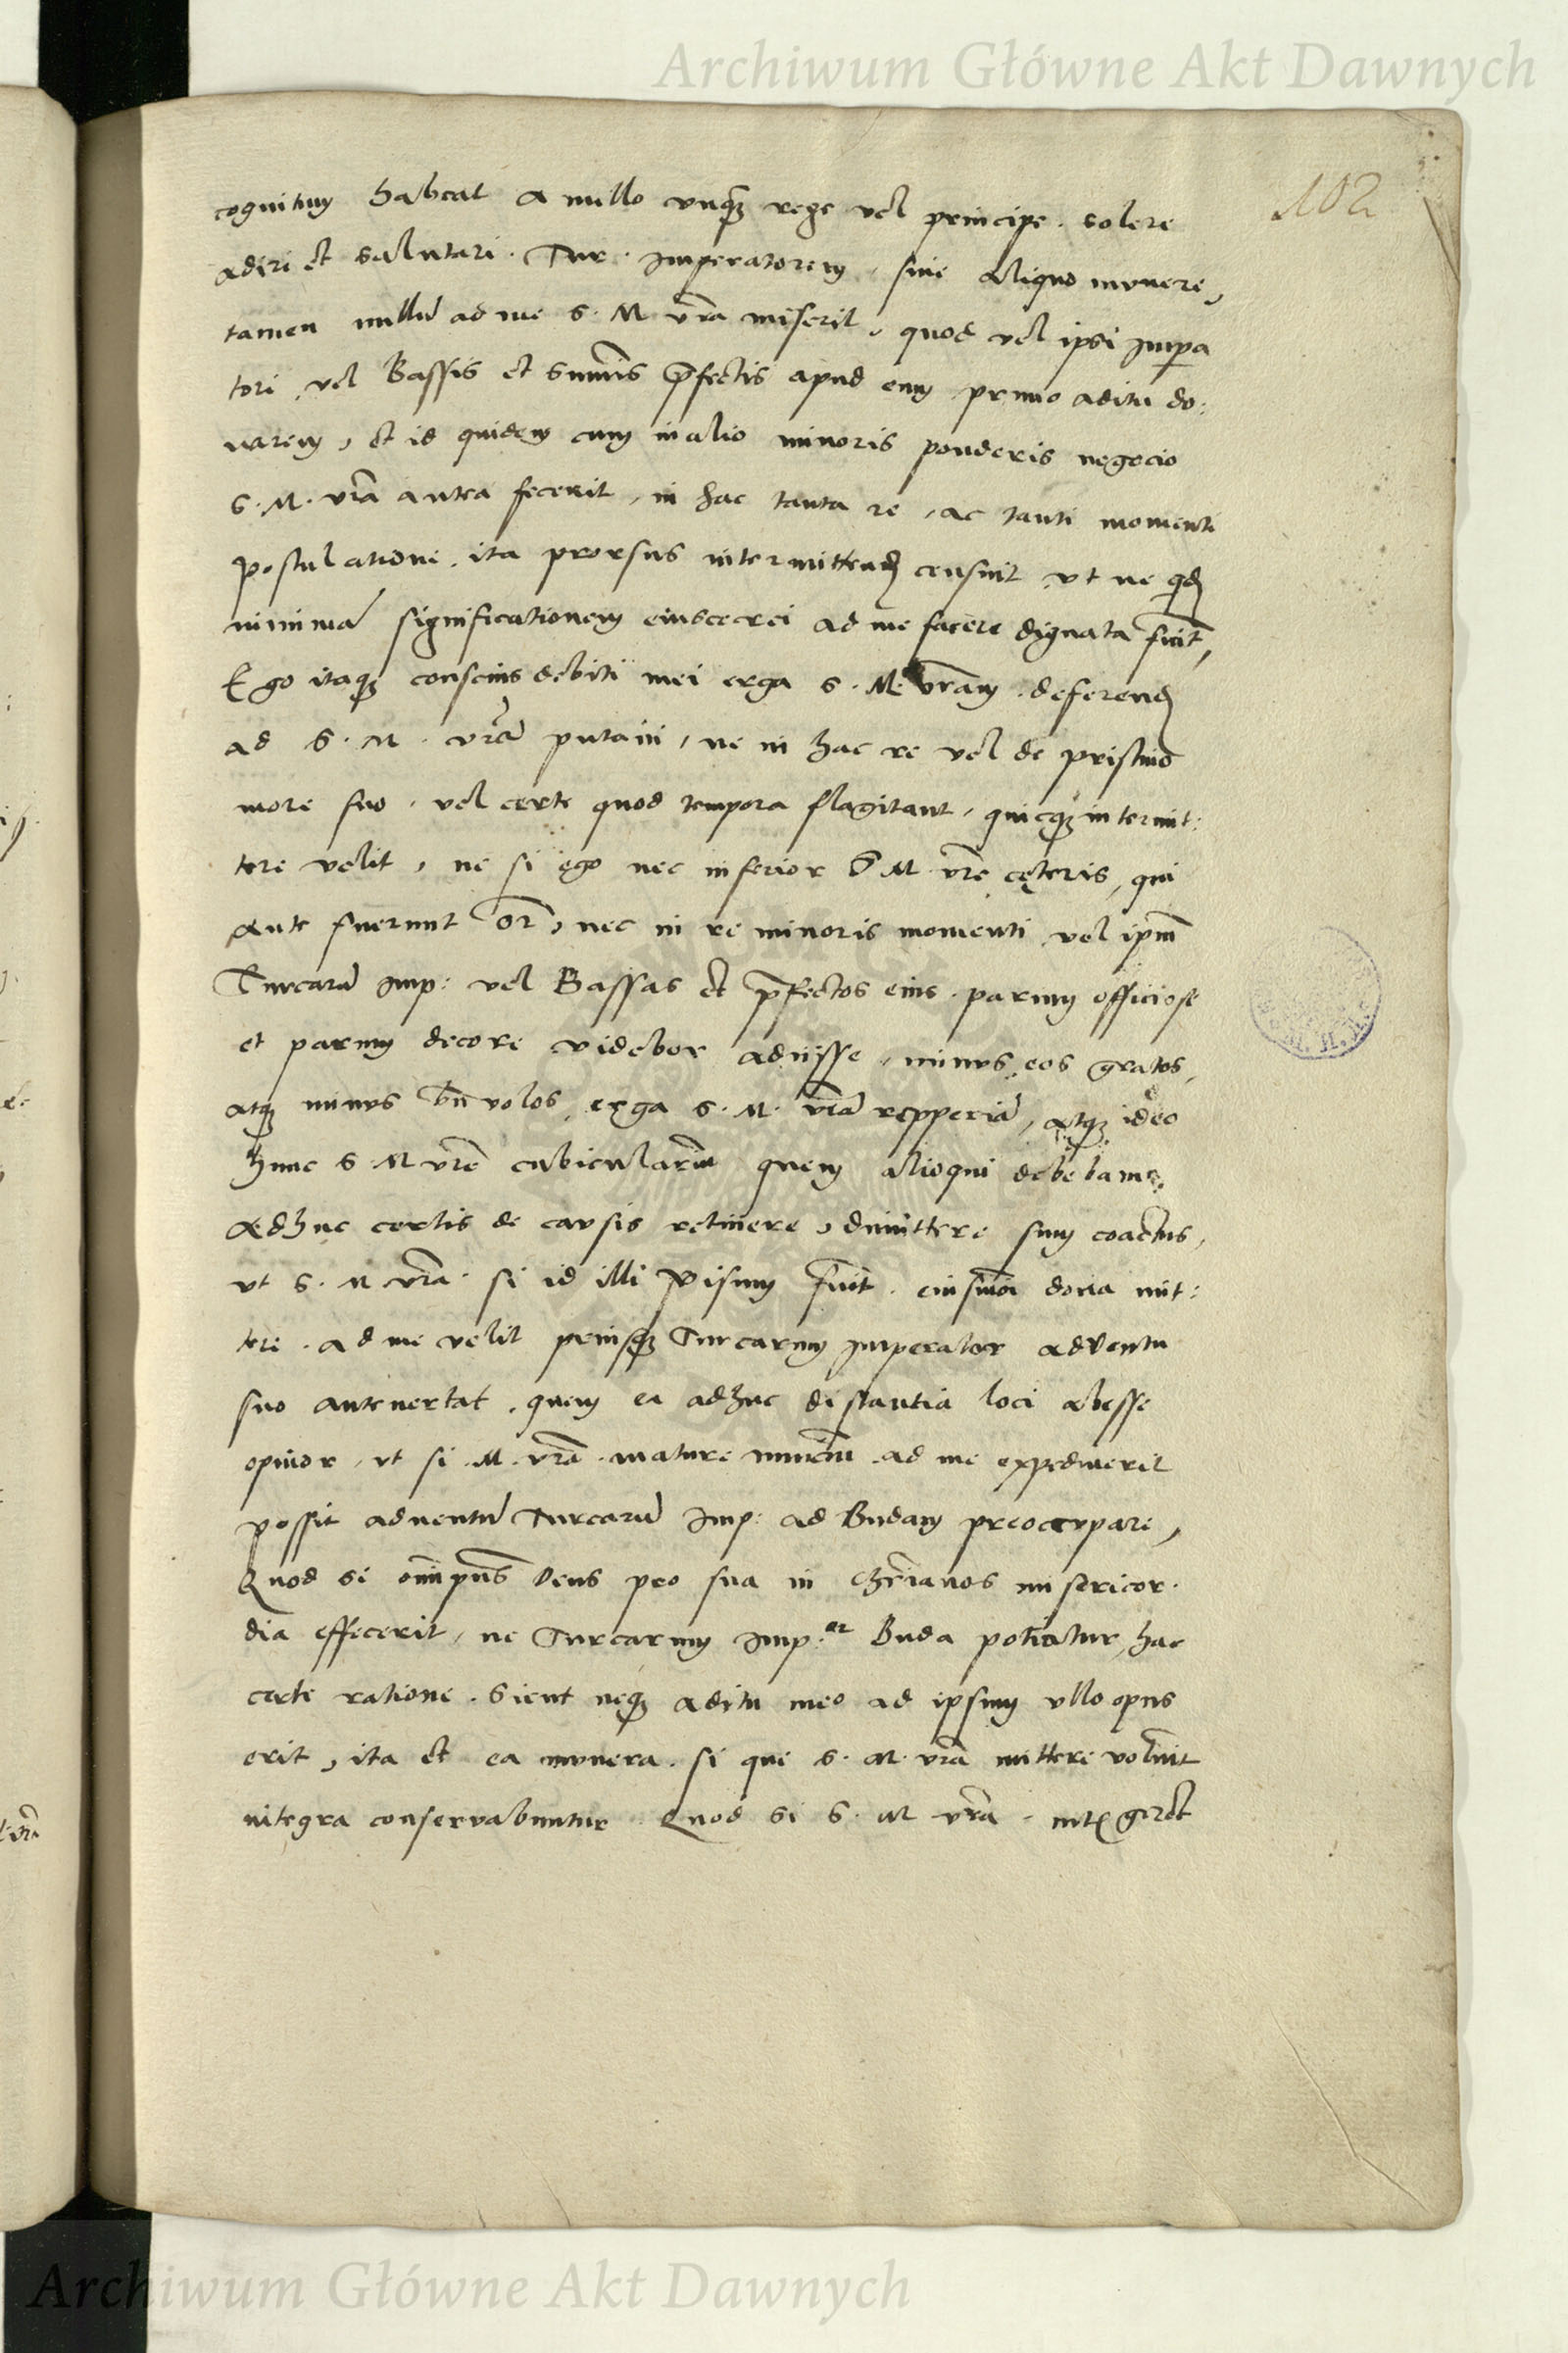 Archiwum Główne Akt Dawnych
102
cognitum habeat a nullo unq̃ꝫ rege vel principe. solere
adiri et salutari. Tur. Imperatorem, sine aliquo munere,
tamen nullũ ad me S. M. vr̃a miserit, quod vel ipsi Impera
tori, vel Bassis et Summis p̃fectis apud eum primo aditu do:
narem, et id quidem cum in alio minoris ponderis negocio
S. M. vr̃a antea fecerit, in hac tanta re, ac tanti momenti
postulatione, ita prorsus intermittend censuit, ut ne qd
minimã significationem eiuscerei ad me facere dignata fuit,
Ego itaqꝫ conscius debiti mei erga S. M. vr̃am. deferend
ad S. M. vr̃ã putavi, ne in hac re vel de pristino
more suo, vel certe quod tempora flagitant, quicqꝫ intermit:
tere velit, ne si ego nec inferior S M vr̃e cęteris, qui
ante fuerunt or̃, nec in re minoris momenti vel ipm̃
Turcarũ Imp: vel Bassas et p̃fectos eius. parum officiose
et parum decore videbor adiisse, minus eos gratos,
atqꝫ minus bñvolos, erga S. M. vr̃ã repperiã, atqꝫ ideo
hunc S. M vr̃e cubiculariũ quem alioqui debebam
adhuc certis de causis retinere, dimittere sum coactus,
ut S. M vr̃a. si id illi visum fuit. eiusmõi dona mit:
tere. ad me velit priusqꝫ Turcarum Imperator adventu
suo antevertat, quem ea adhuc distantia loci abesse
opinor, ut si. M. vr̃a. mature nunciũ ad me expediverit
possit adventũ Turcarũ Imp: ad Budam preoccupare,
Quod si om̃ipñs Deus pro sua in Chr̃ianos misericor.
dia effecerit, ne Turcarum Imp:or Buda potiatur, hac
certe ratione. Sicut neqꝫ aditu meo ad ipsum ullo opus
erit, ita et ea munera. si que S. M. vr̃a mittere voluit
integra conservabuntur. Quod si S. M vr̃a.
Archiwum Główne Akt Dawnych